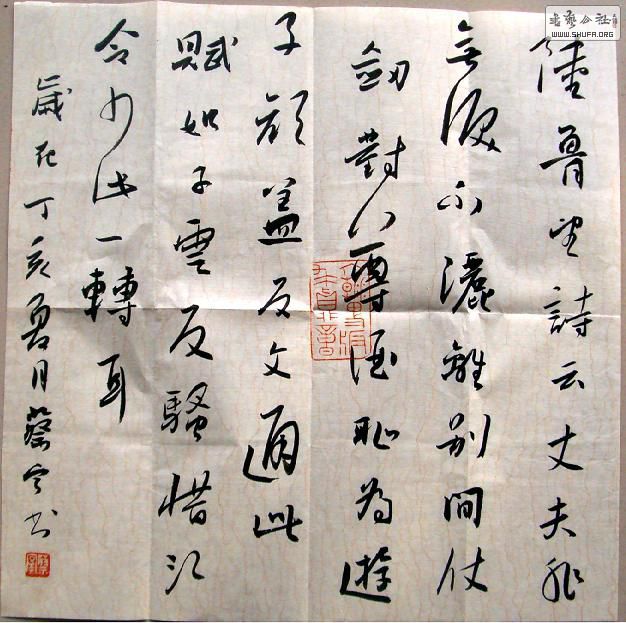 陸魯望詩云丈夫非
無淚不灑離別間仗
劍對尊酒恥為遊
子顏蓋反文通此
賦如子雲反騷惜江
令少此一轉耳
歲在丁亥夏月蔡書
書藝公社
WWW.SHUFA.ORG